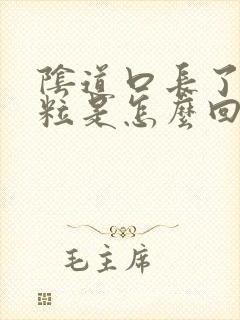 陰道口長了
粒是怎麼回
毛主席